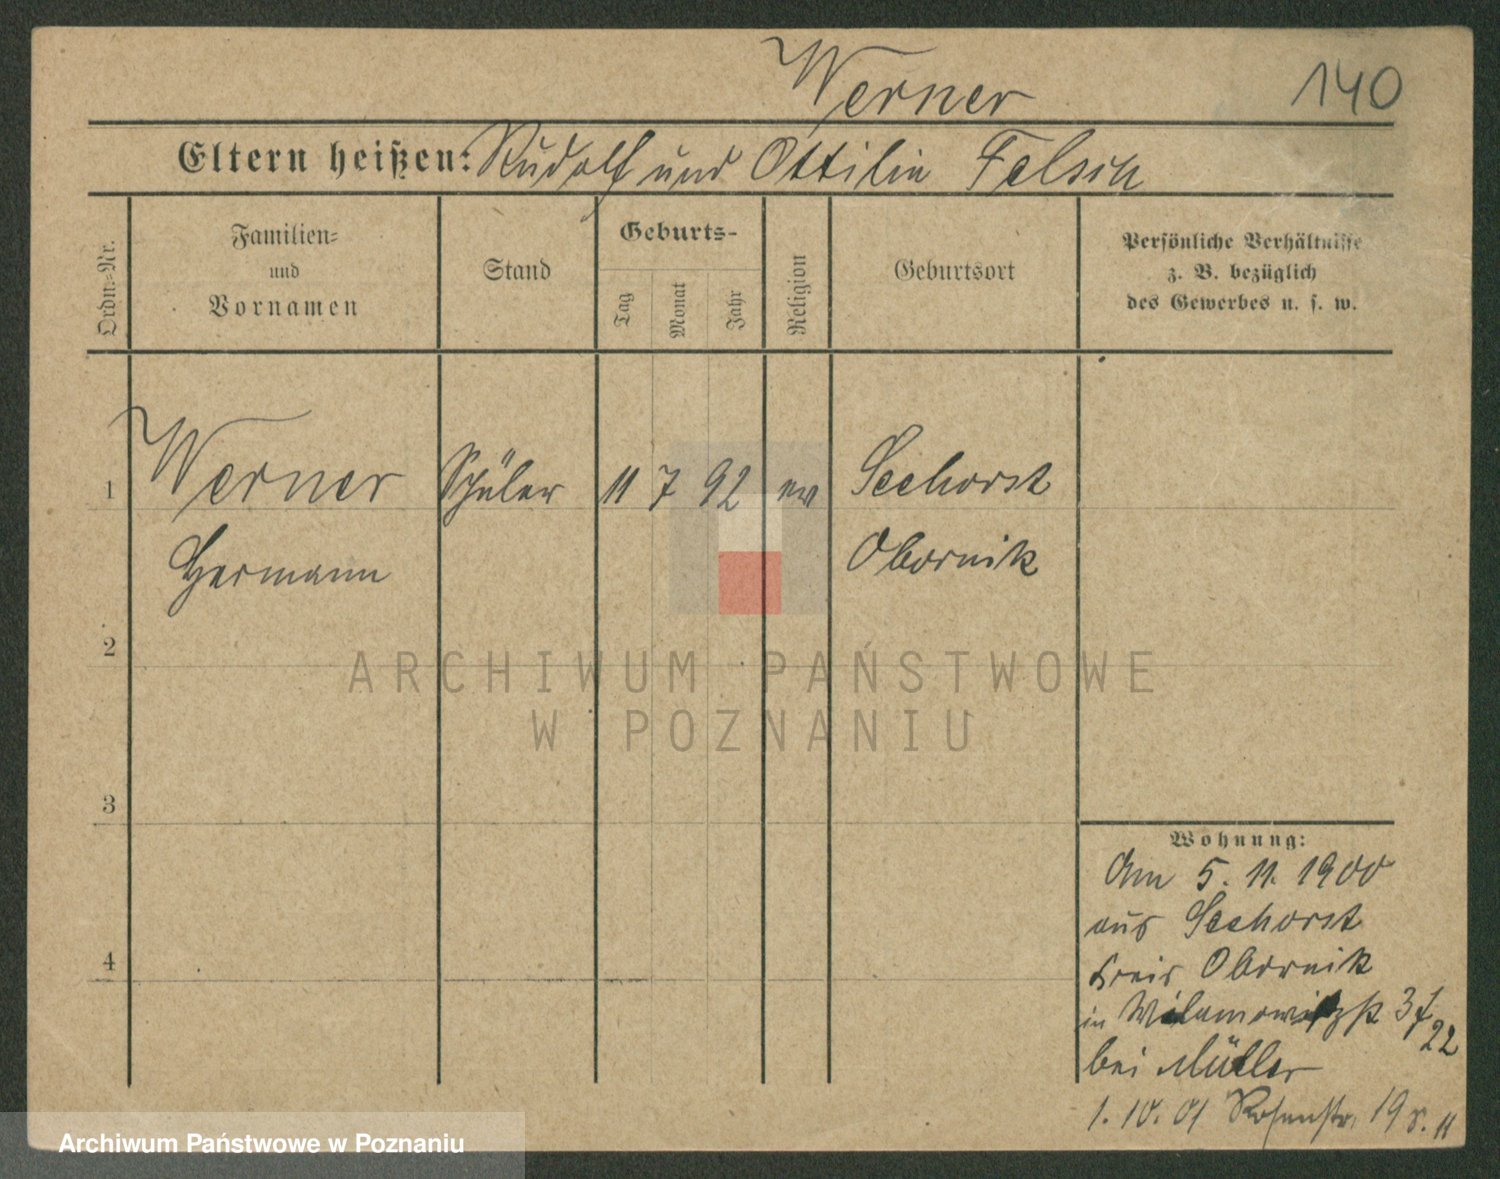 Werner
140
Eltern heißen: Rudolf und Ottilie Felsch
Ordn.-Nr.
Familien-
und
Vornamen
Stand
Geburts-
Tag
Monat
Jahr
Religion
Geburtsort
Persönliche Verhältnisse
z. B. bezüglich
des Gewerbes u. s. w.
1
Werner Schüler 11 7 92 ev Seehorst
Hermann
Obornik
2
ARCHIWUM PAŃSTWOWE
W POZNANIU
3
4
Wohnung:
Am 5. 11. 1900
aus Seehorst
Kreis Obornik
in
22
bei Müller
1. 10. 01 Rosenstr. 19
Archiwum Państwowe w Poznaniu